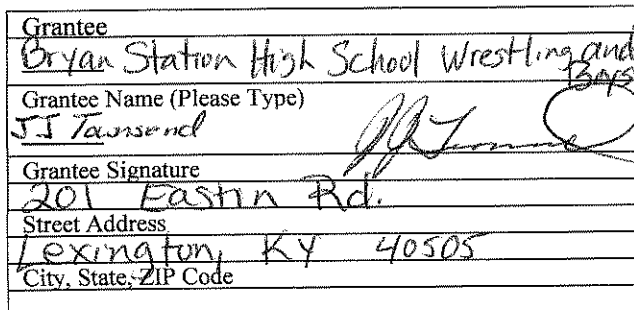 Grantee
Bryan Station High School Wrestling and
Boys
Grantee Name (Please Type)
JJ Townsend
Grantee Signature
201 Eastin Rd.
Street Address
Lexington, KY 40505
City, State, ZIP Code